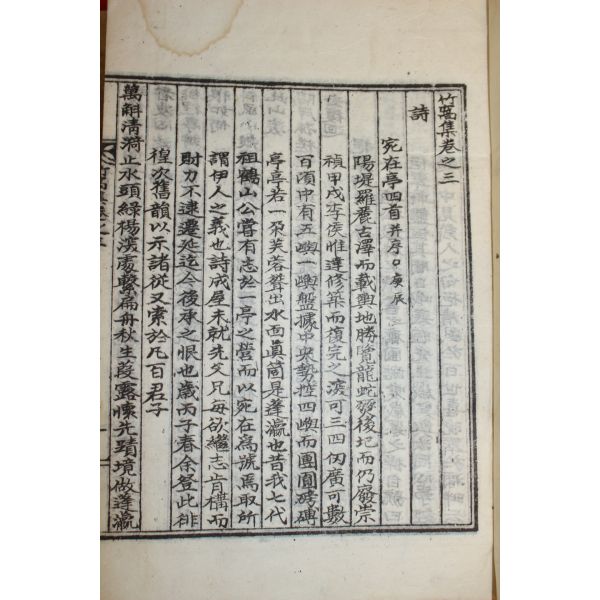 竹窩集卷之三
詩
宛在亭四首 并序○庚辰
陽堤羅麓古澤而載輿地勝覽龍蛇燹後圮而仍廢崇
禎甲戌李侯惟達修築而復完之深可三四仞廣可數
百頃中有五嶼一嶼盤據中央勢控四嶼而團圓磅礴
亭亭若一朶芙蓉聳出水面眞箇是蓬瀛也昔我七代
祖鶴山公嘗有志於一亭之營而以宛在爲號焉取所
謂伊人之義也詩成屋未就先父兄每欲繼志肯構而
財力不逮遷延迄今後承之恨也歲丙子春余登此徘
徨次舊韻以示諸從又索於凡百君子
萬斛淸漪止水頭綠楊深處繫扁舟秋生葭露懷先蹟境倣蓬瀛